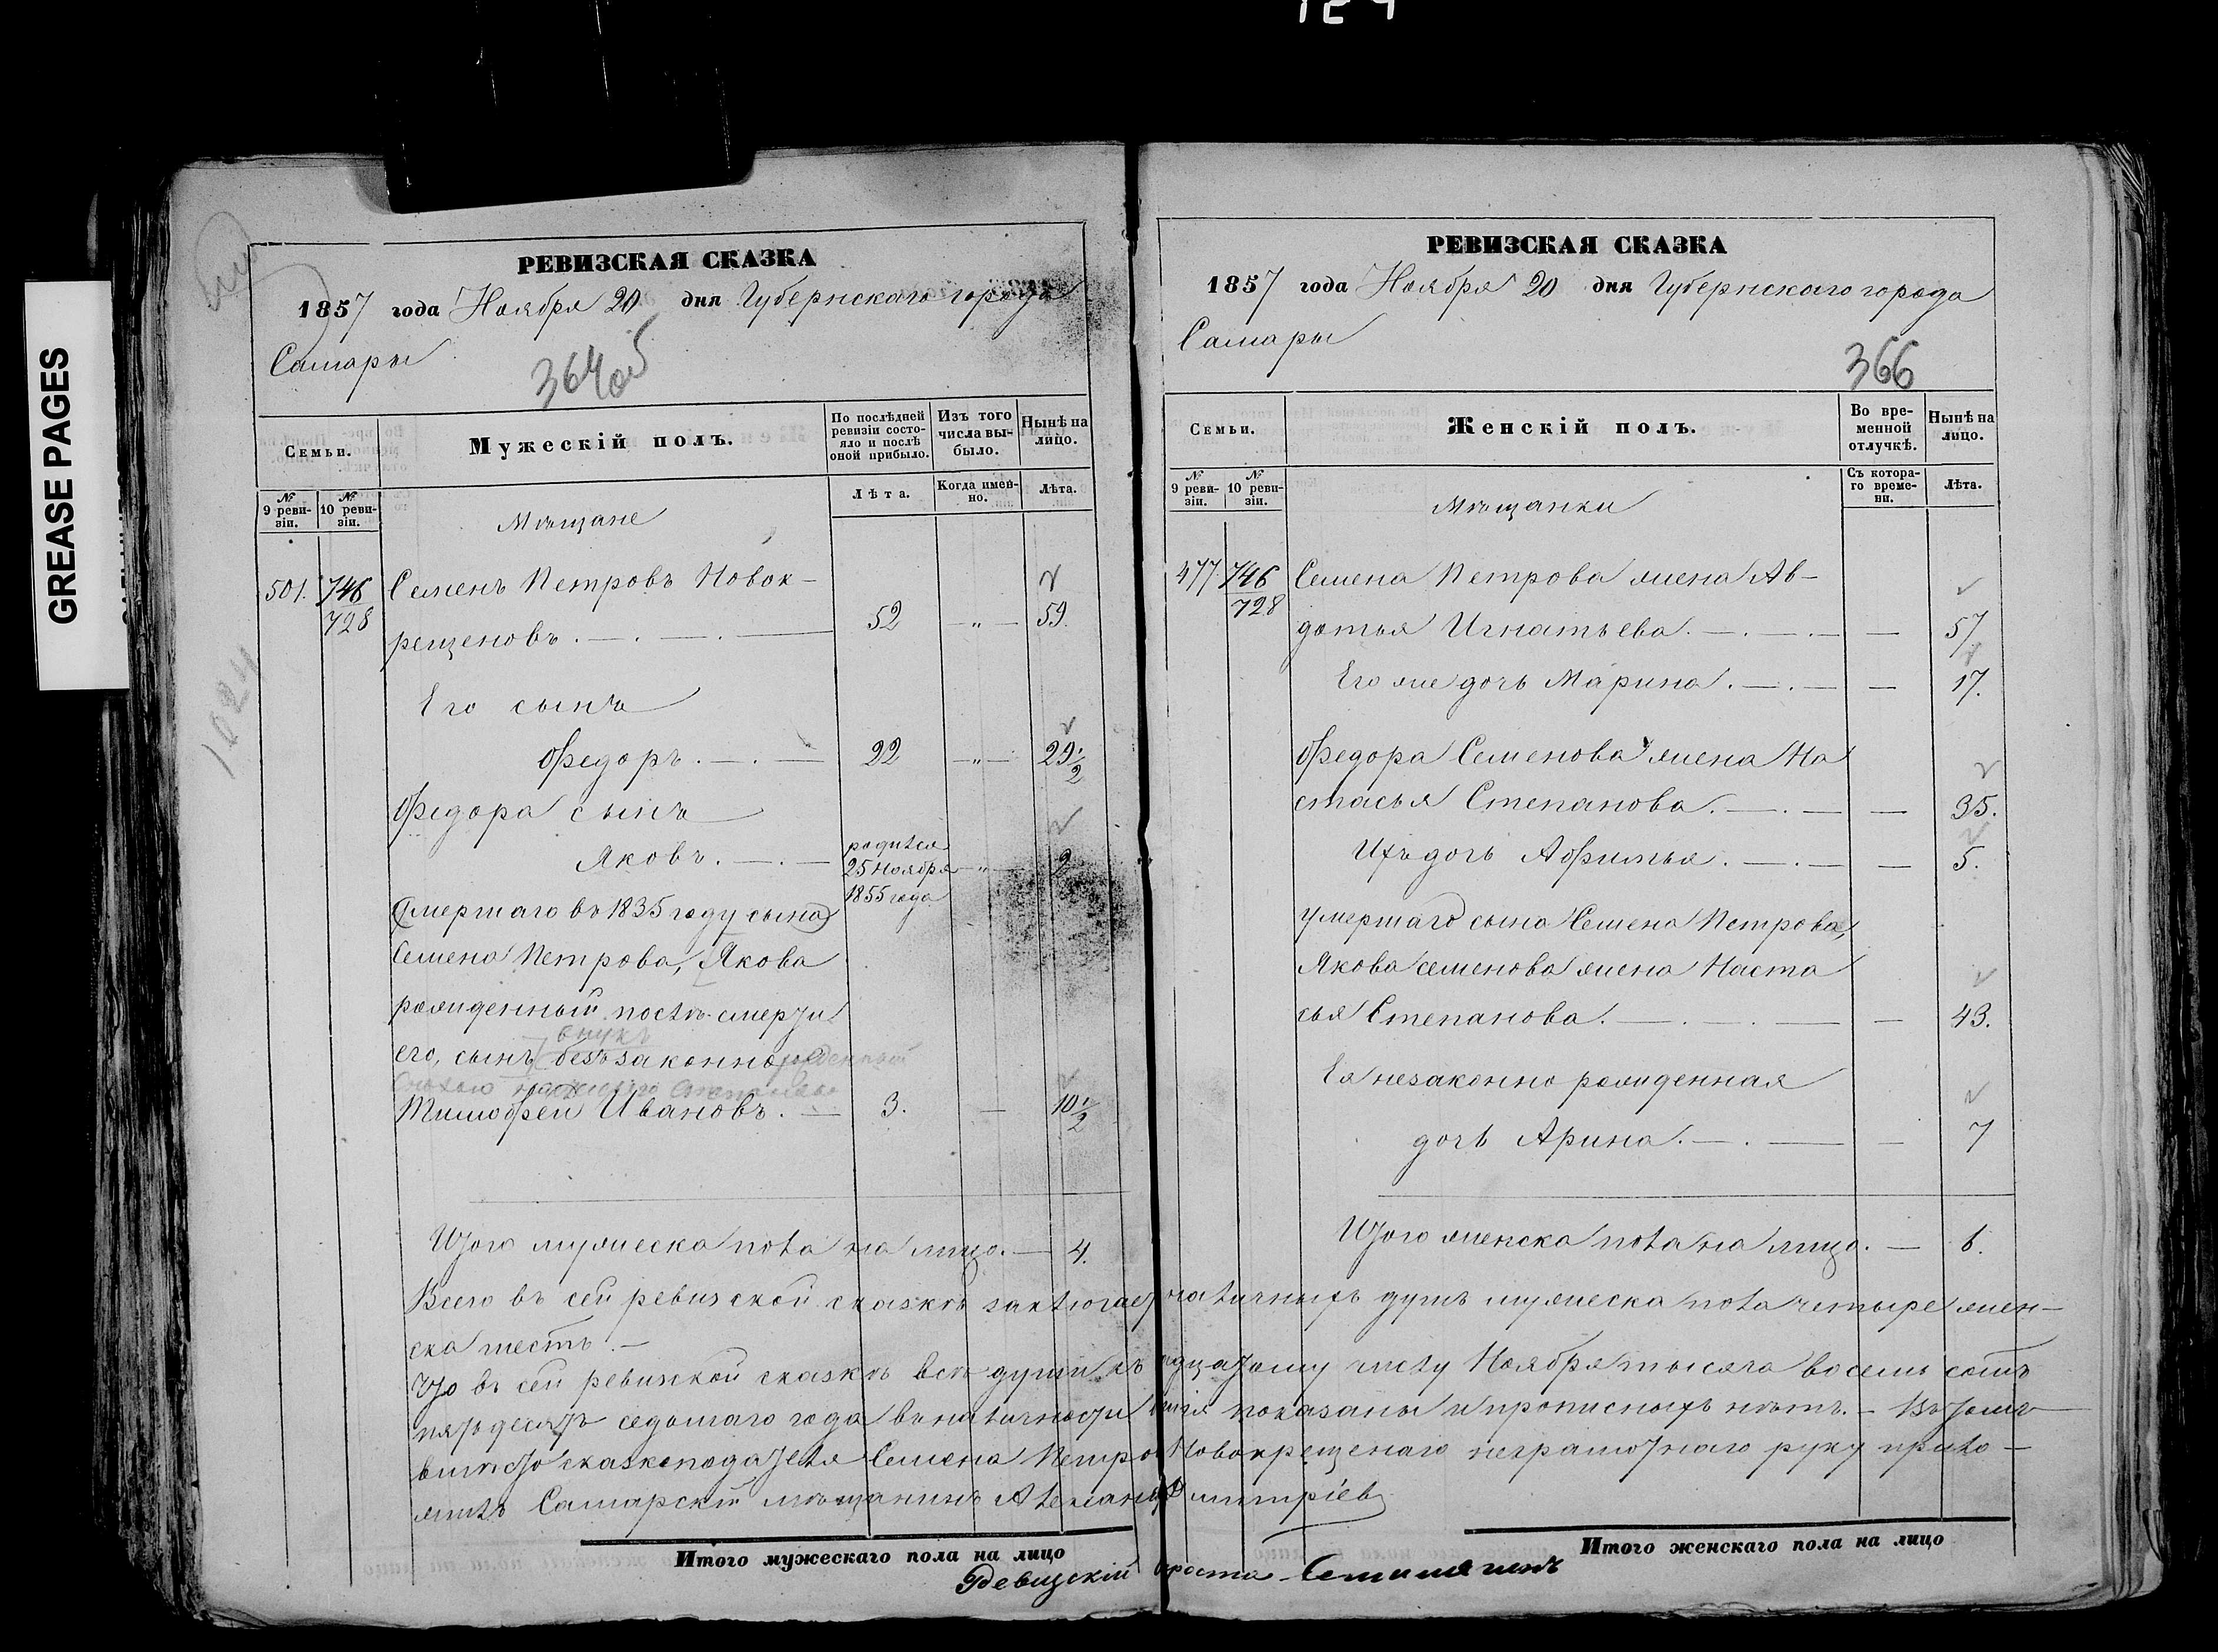 GREASE PAGES
РЕВИЗСКАЯ СКАЗКА
1857 года Ноября 20 дня Губернскаго города
Самары
364об
Семьи.
Мужескій полъ.
По послѣдней ревизіи состояло и послѣ оной прибыло.
Изъ того числа выбыло.
Нынѣ на лицо.
№ 9 ревизіи.
№ 10 ревизіи.
Лѣта.
Когда именно.
Лѣта.
Мѣщане
501. 746 Семенъ Петровъ Новок-
728 рещеновъ. 52 — " — 59.
Его сынъ
Федоръ. 22 — " — 29 1/2
Федора сынъ
Яковъ. родился 25 Ноября 1855 года " 2
Умершаго въ 1835 году сына
Семена Петрова, Якова
рожденный послѣ смерти
внукъ
его, сынъ безъзаконно рожденный
Тимофей Ивановъ. 3. — 10 1/2
Итого мужеска пола на лицо. 4.
РЕВИЗСКАЯ СКАЗКА
1857 года Ноября 20 дня Губернскаго города
Самары
366
Семьи.
Женскій полъ.
Во временной отлучкѣ.
Нынѣ на лицо.
№ 9 ревизіи.
№ 10 ревизіи.
Съ котораго времени.
Лѣта.
Мѣщанки
477. 746 Семена Петрова жена Ав-
728 дотья Игнатьева. — 57.
Его же дочь Марина. — 17.
Федора Семенова жена На
стасья Степанова. — 35.
Ихъ дочь Афимья. — 5.
умершаго сына Семена Петрова,
Якова Семенова жена Наста
сья Степанова. — 43.
Ея незаконно рожденная
дочь Арина. — 7
Итого женска пола на лицо. — 6.
Всего въ сей ревизской сказкѣ заключает наличныхъ душъ мужеска пола четыре жен-
ска шесть.
Что въ сей ревизской сказкѣ всѣ души къ дцатому числу Ноября тысяча восемь сотъ
пятьдесятъ седьмаго года въ наличности показаны и прописныхъ нѣтъ. — Въ томъ
вмѣсто сказкоподателя Семена Петро Новокрещенаго неграмотнаго руку прило-
жилъ Самарскій мѣщанинъ Александ Дмитріевъ
Итого мужескаго пола на лицо
Итого женскаго пола на лицо
Ревизскій роста